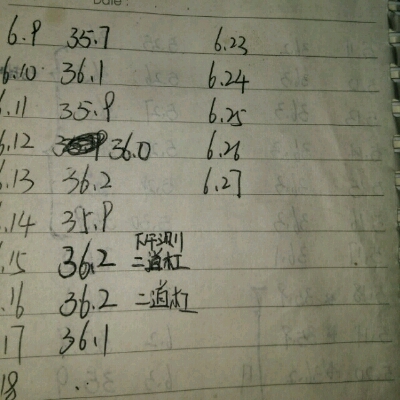 Date:
6.9 35.7 6.23
6.10 36.1 6.24
6.11 35.9 6.25
6.12 36.0 6.26
6.13 36.2 6.27
.14 35.9
.15 36.2 下午测 二道杠
.16 36.2 二道杠
.17 36.1
18